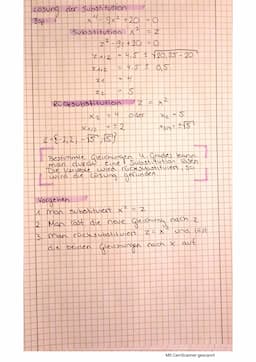 Lösung der Substitution
Bsp:
x⁴ - 9x² + 20 = 0
Substitution: x² = z
z² - 9z + 20 = 0
z₁,₂ = 4,5 ± √20,25 - 20
z₁,₂ = 4,5 ± 0,5
z₁ = 4
z₂ = 5
Rücksubstitution z = x²
x² = 4 oder x² = 5
x₁,₂ = ±2 x₃,₄ = ±√5
L={-2,2, -√5, √5}
Bestimmte Gleichungen 4. Grades kann
man durch eine Substitution lösen
Die Variable wird rücksubstituiert, so
wird die Lösung gefunden.
Vorgehen
1. Man substituiert x² = z
2. Man löst die neue Gleichung nach z
3. Man rücksubstituiert z = x² und löst
die beiden Gleichungen nach x auf.
Mit CamScanner gescannt